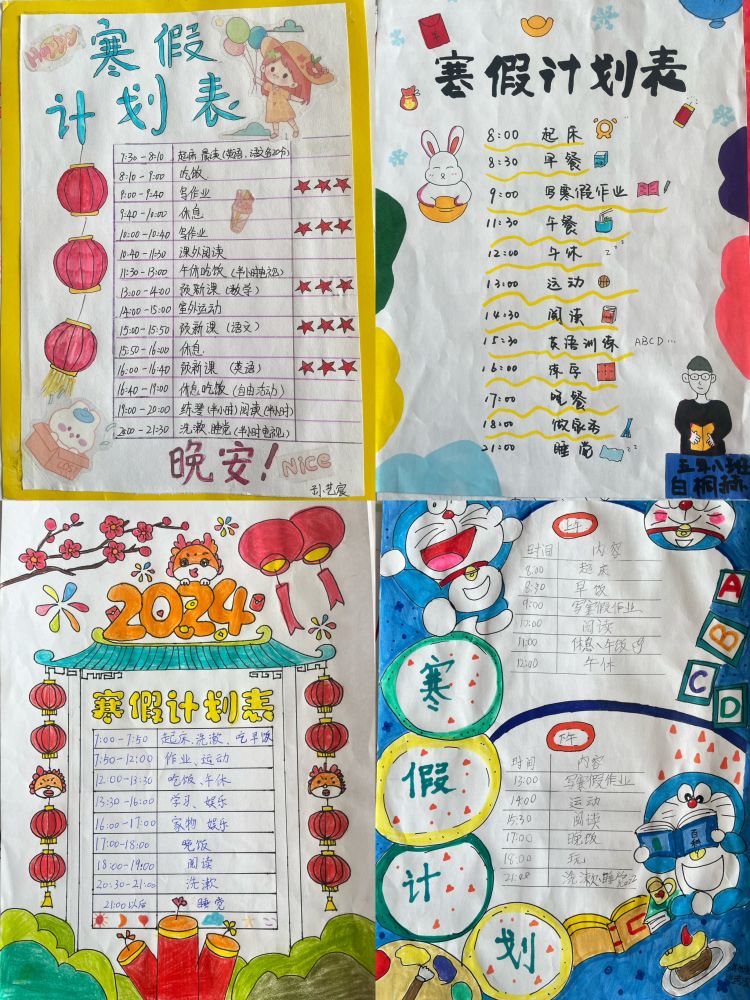 HAPPY
寒假
计划表
7:30-8:10 起床 晨读(英语、语文各20分)
8:10-9:00 吃饭
9:00-9:40 写作业
9:40-10:00 休息
10:00-10:40 写作业
10:40-11:30 课外阅读
11:30-13:00 午休吃饭(半小时电视)
13:00-14:00 预新课(数学)
14:00-15:00 室外运动
15:00-15:50 预新课(语文)
15:50-16:00 休息
16:00-16:40 预新课(英语)
16:40-19:00 休息吃饭(自由活动)
19:00-20:00 练琴(半小时)阅读(半小时)
20:00-21:30 洗漱、睡觉(半小时电视)
晚安!
Nice
寒假计划表
8:00 起床
8:30 早餐
9:00 写寒假作业
11:30 午餐
12:00 午休
zzz
13:00 运动
14:30 阅读
15:30 英语训练 ABCD...
16:00 练字
17:00 晚餐
18:00 做家务
21:00 睡觉
五年八班
2024
寒假计划表
7:00-7:50 起床、洗漱、吃早饭
7:50-12:00 作业、运动
12:00-13:30 吃饭、午休
13:30-16:00 学习、娱乐
16:00-17:00 家物 娱乐
17:00-18:00 晚饭
18:00-19:00 阅读
20:30-21:00 洗漱
21:00以后 睡觉
上午
时间 内容
8:00 起床
8:30 早饭
9:00 写寒假作业
10:00 阅读
11:00 休息、午饭
12:00 午休
A
B
C
D
寒
假
计
划
下午
时间 内容
13:00 写寒假作业
14:00 运动
15:30 阅读
17:00 晚饭
18:00 玩
洗漱、睡觉
百科